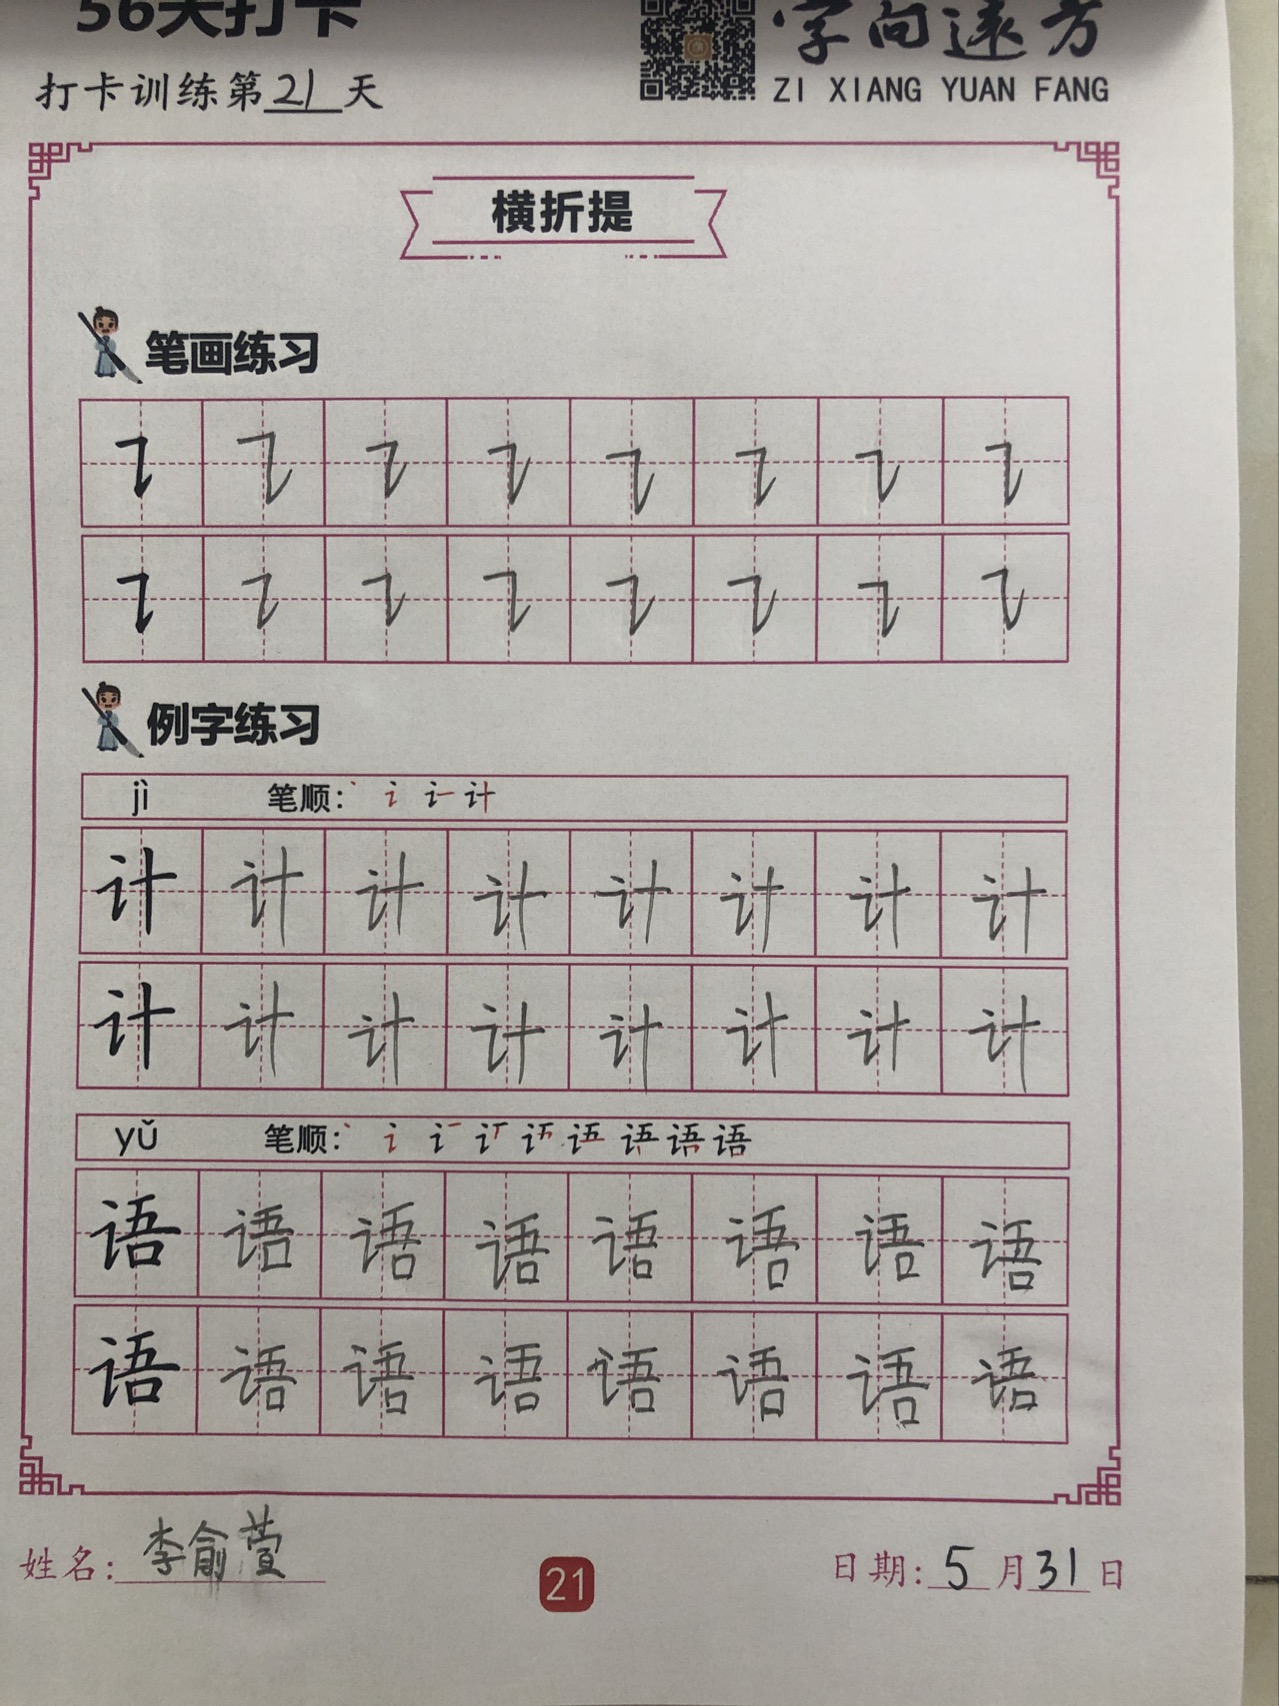 56天打卡
字向远方
打卡训练第21天
ZI XIANG YUAN FANG
横折提
笔画练习
例字练习
jì 笔顺:
计 计 计 计 计 计 计 计
计 计 计 计 计 计 计 计
yǔ 笔顺: 语
语 语 语 语 语 语 语 语
语 语 语 语 语 语 语 语
姓名:李俞萱
21
日期:5月31日